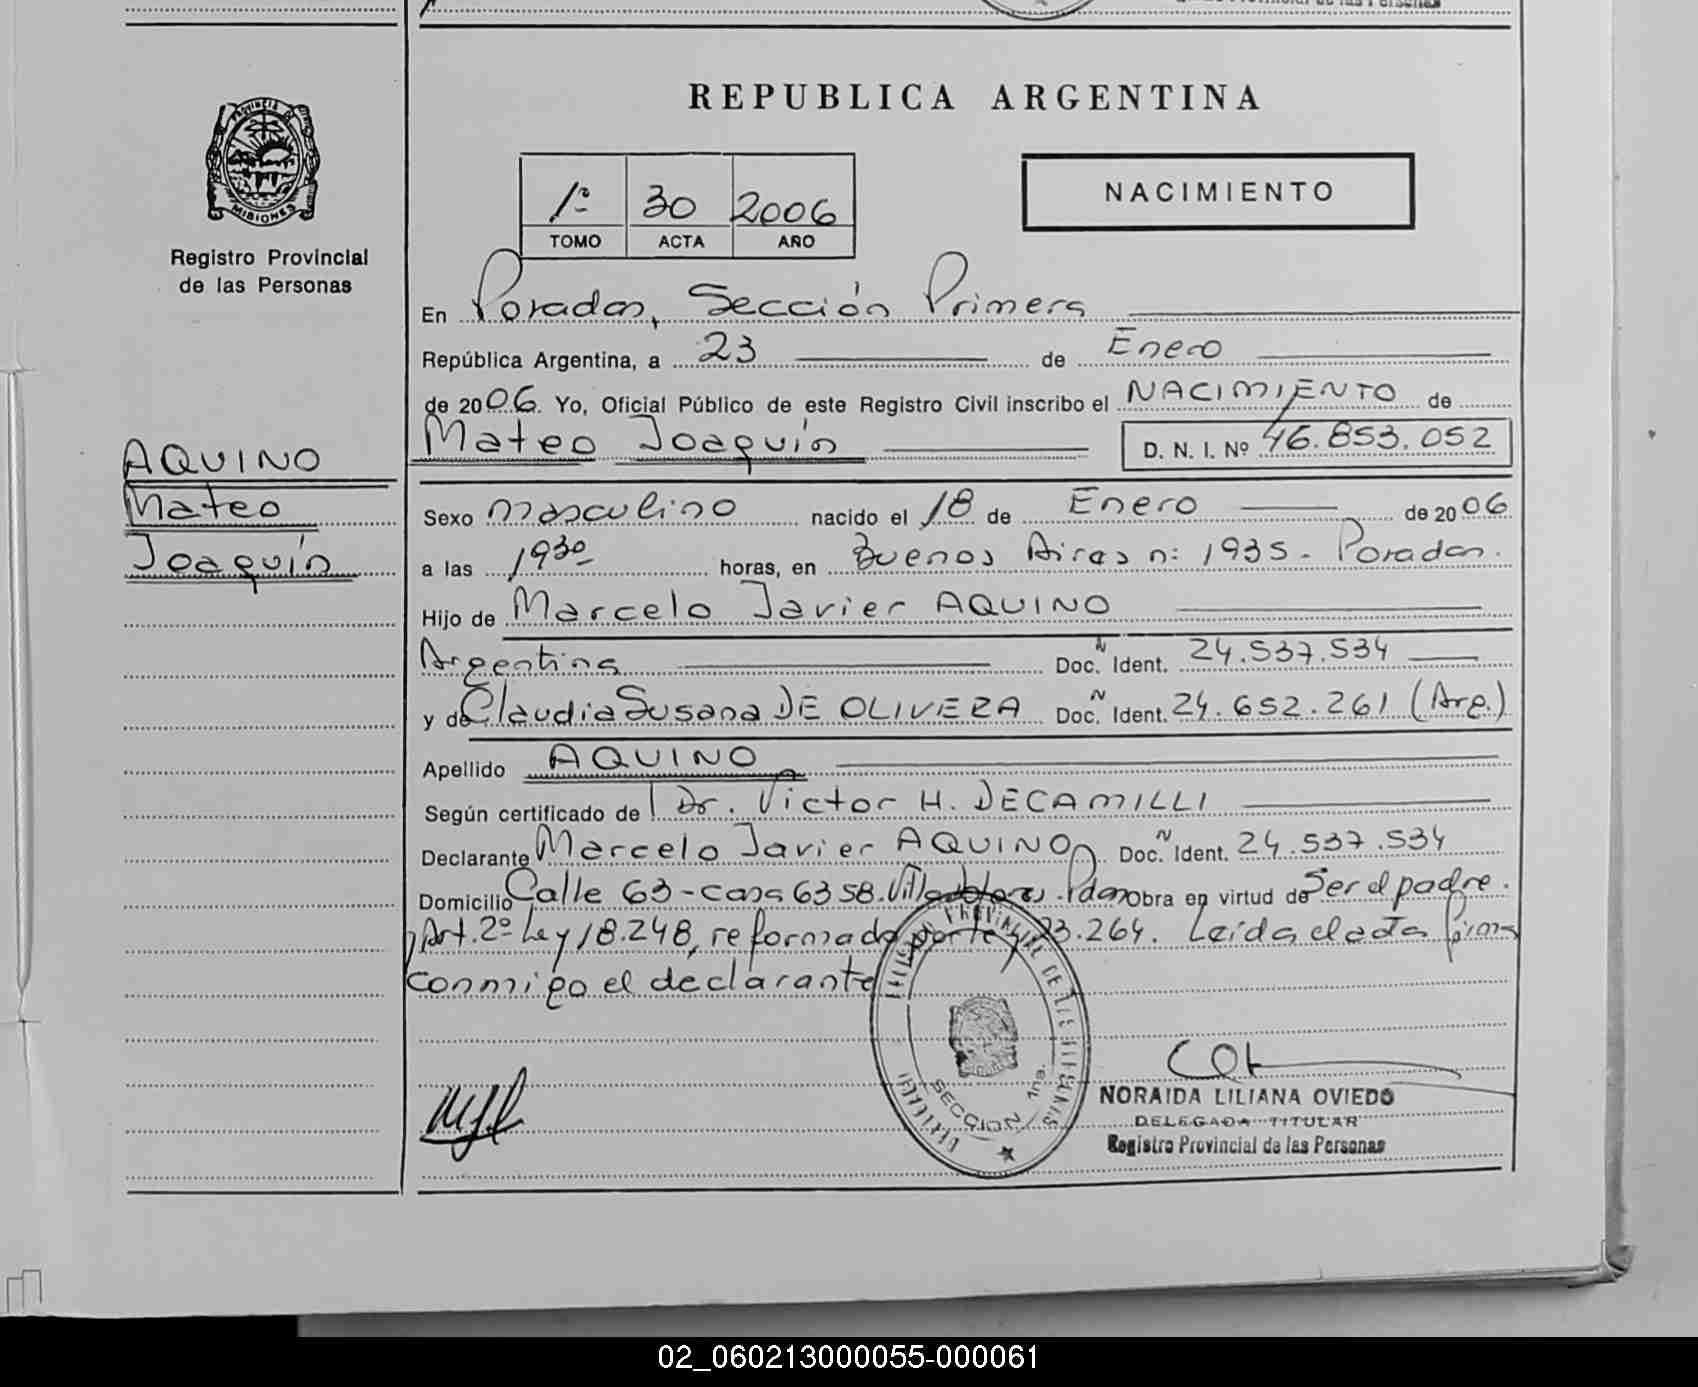 REPUBLICA ARGENTINA
PROVINCIA DE
MISIONES
Registro Provincial
de las Personas
1º 30 2006
TOMO ACTA AÑO
NACIMIENTO
En Posadas, Sección Primera
República Argentina, a 23 de Enero
de 2006. Yo, Oficial Público de este Registro Civil inscribo el NACIMIENTO de
Mateo Joaquín D. N. I. Nº 46.853.052
AQUINO
Mateo
Joaquín
Sexo masculino nacido el 18 de Enero de 2006
a las 1930 horas, en Buenos Aires n: 1935 - Posadas.
Hijo de Marcelo Javier AQUINO
Argentina Doc. Ident. 24.537.534
y de Claudia Susana DE OLIVERA Doc. Ident. 24.652.261 (Arg.)
Apellido AQUINO
Según certificado de Dr. Victor H. DECAMILLI
Declarante Marcelo Javier AQUINO Doc. Ident. 24.537.534
Domicilio Calle 63 - casa 6358. Villa Pdas obra en virtud de Ser el padre.
Art. 2º Ley 18.248, reformado por Ley 23.264. Leída el acta firma
conmigo el declarante
SECCION 1ra.
NORAIDA LILIANA OVIEDO
DELEGADA TITULAR
Registro Provincial de las Personas
02_060213000055-000061